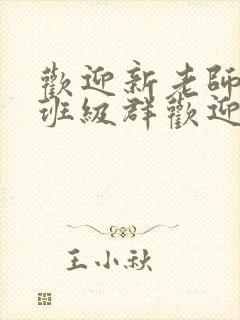 歡迎新老師
班級群歡迎
王小秋